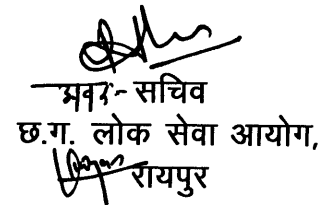 अवर- सचिव
छ.ग. लोक सेवा आयोग,
रायपुर